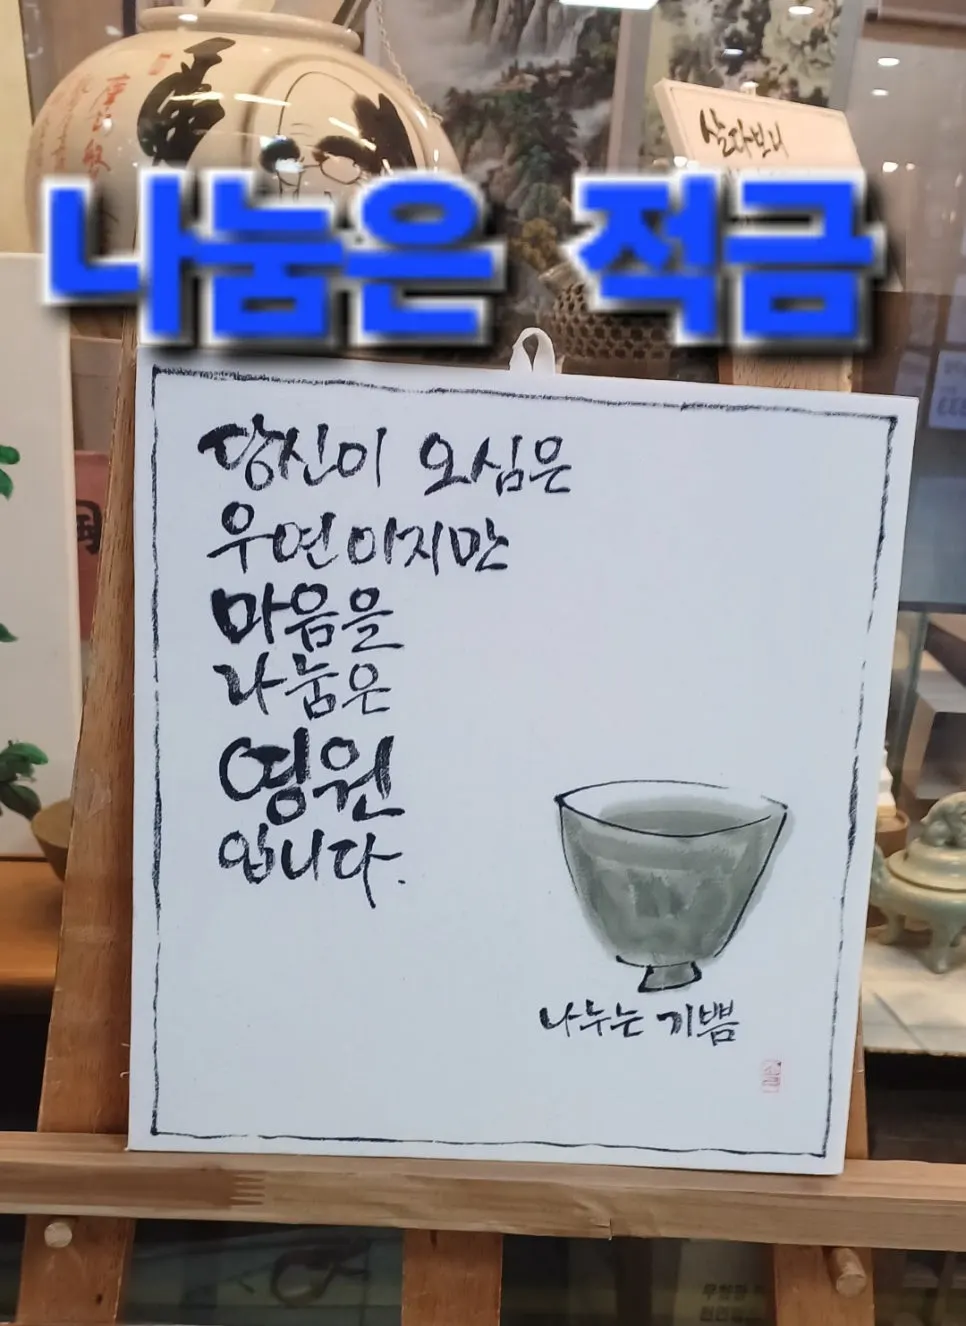 살다보니
나눔은 적금
당신이 오심은
우연이지만
마음을
나눔은
영원
입니다.
나누는 기쁨